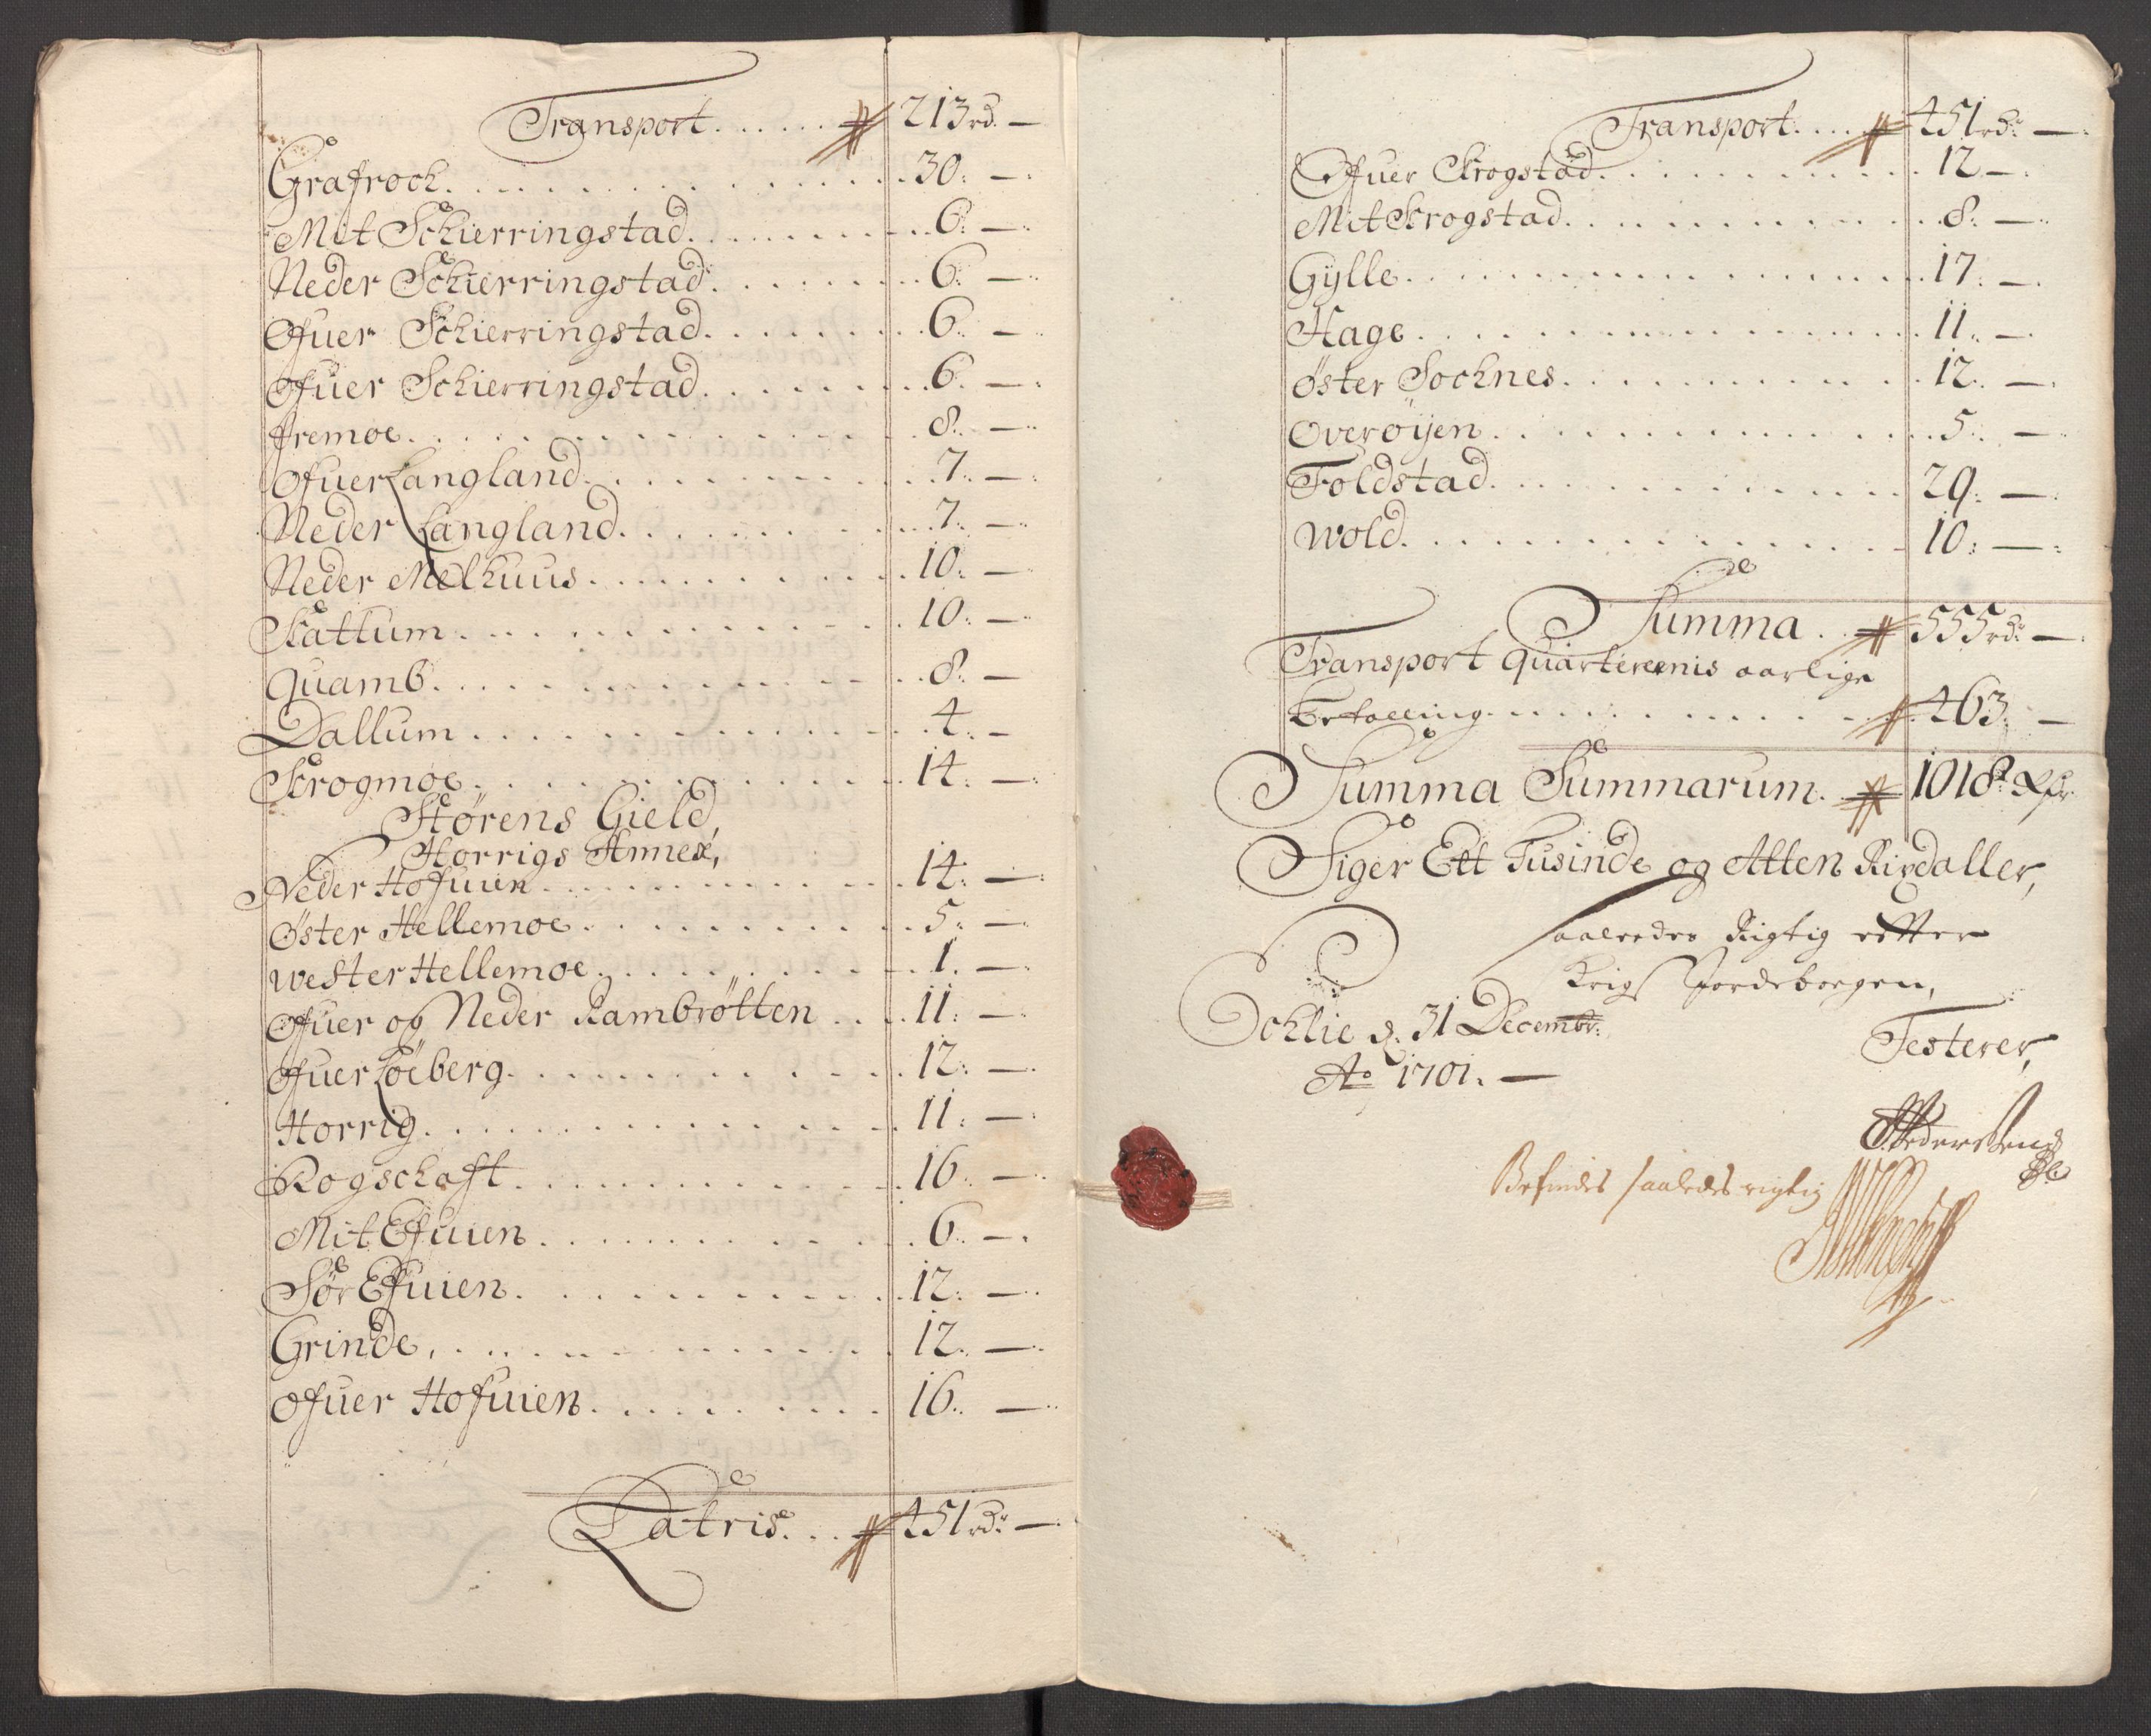 Transport ...... 213 rd. —
Grafroch ...... 30. —
Mit Schierringstad ...... 6. —
Neder Schierringstad ...... 6. —
Ofuer Schierringstad ...... 6. —
Ofuer Schierringstad ...... 6. —
Fremoe ...... 8. —
Ofuer Langland ...... 7. —
Neder Langland ...... 7. —
Neder Melhuus ...... 10. —
Skattum ...... 10. —
Quamb ...... 8. —
Dallum ...... 4. —
Skrogmoe ...... 14. —
Størens Gield,
Horrigs Annex,
Neder Hofuien ...... 14. —
Øster Hellemoe ...... 5. —
Wester Hellemoe ...... 1. —
Ofuer og Neder Rambrötten .... 11. —
Ofuer Löeberg ...... 12. —
Horrig ...... 11. —
Rogschaft ...... 16. —
Mit Efuien ...... 6. —
Sør Efuien ...... 12. —
Grinde ...... 12. —
Ofuer Hofuien ...... 16. —
Latris ... 451 rdr —
Transport .... 451 rdr —
Ofuer Skrogstad ...... 12 —
Mit Skrogstad ...... 8. —
Gylle ...... 17. —
Hage ...... 11. —
Øster Sochnes ...... 12. —
Overøijen ...... 5. —
Foldstad ...... 29. —
Wold ...... 10. —
Summa .. 555 rdr —
Transport quarterernis aarlige
...... 463. —
Summa Summarum. 1018
Siger Ett Tusinde og Atten Rixdaller,
saaleedes Rigtig effter
Krigs Jordebogen,
Sohlie d. 31 Decembr:
Ao 1701. —
Testerer,
Befindes saaledes rigtig